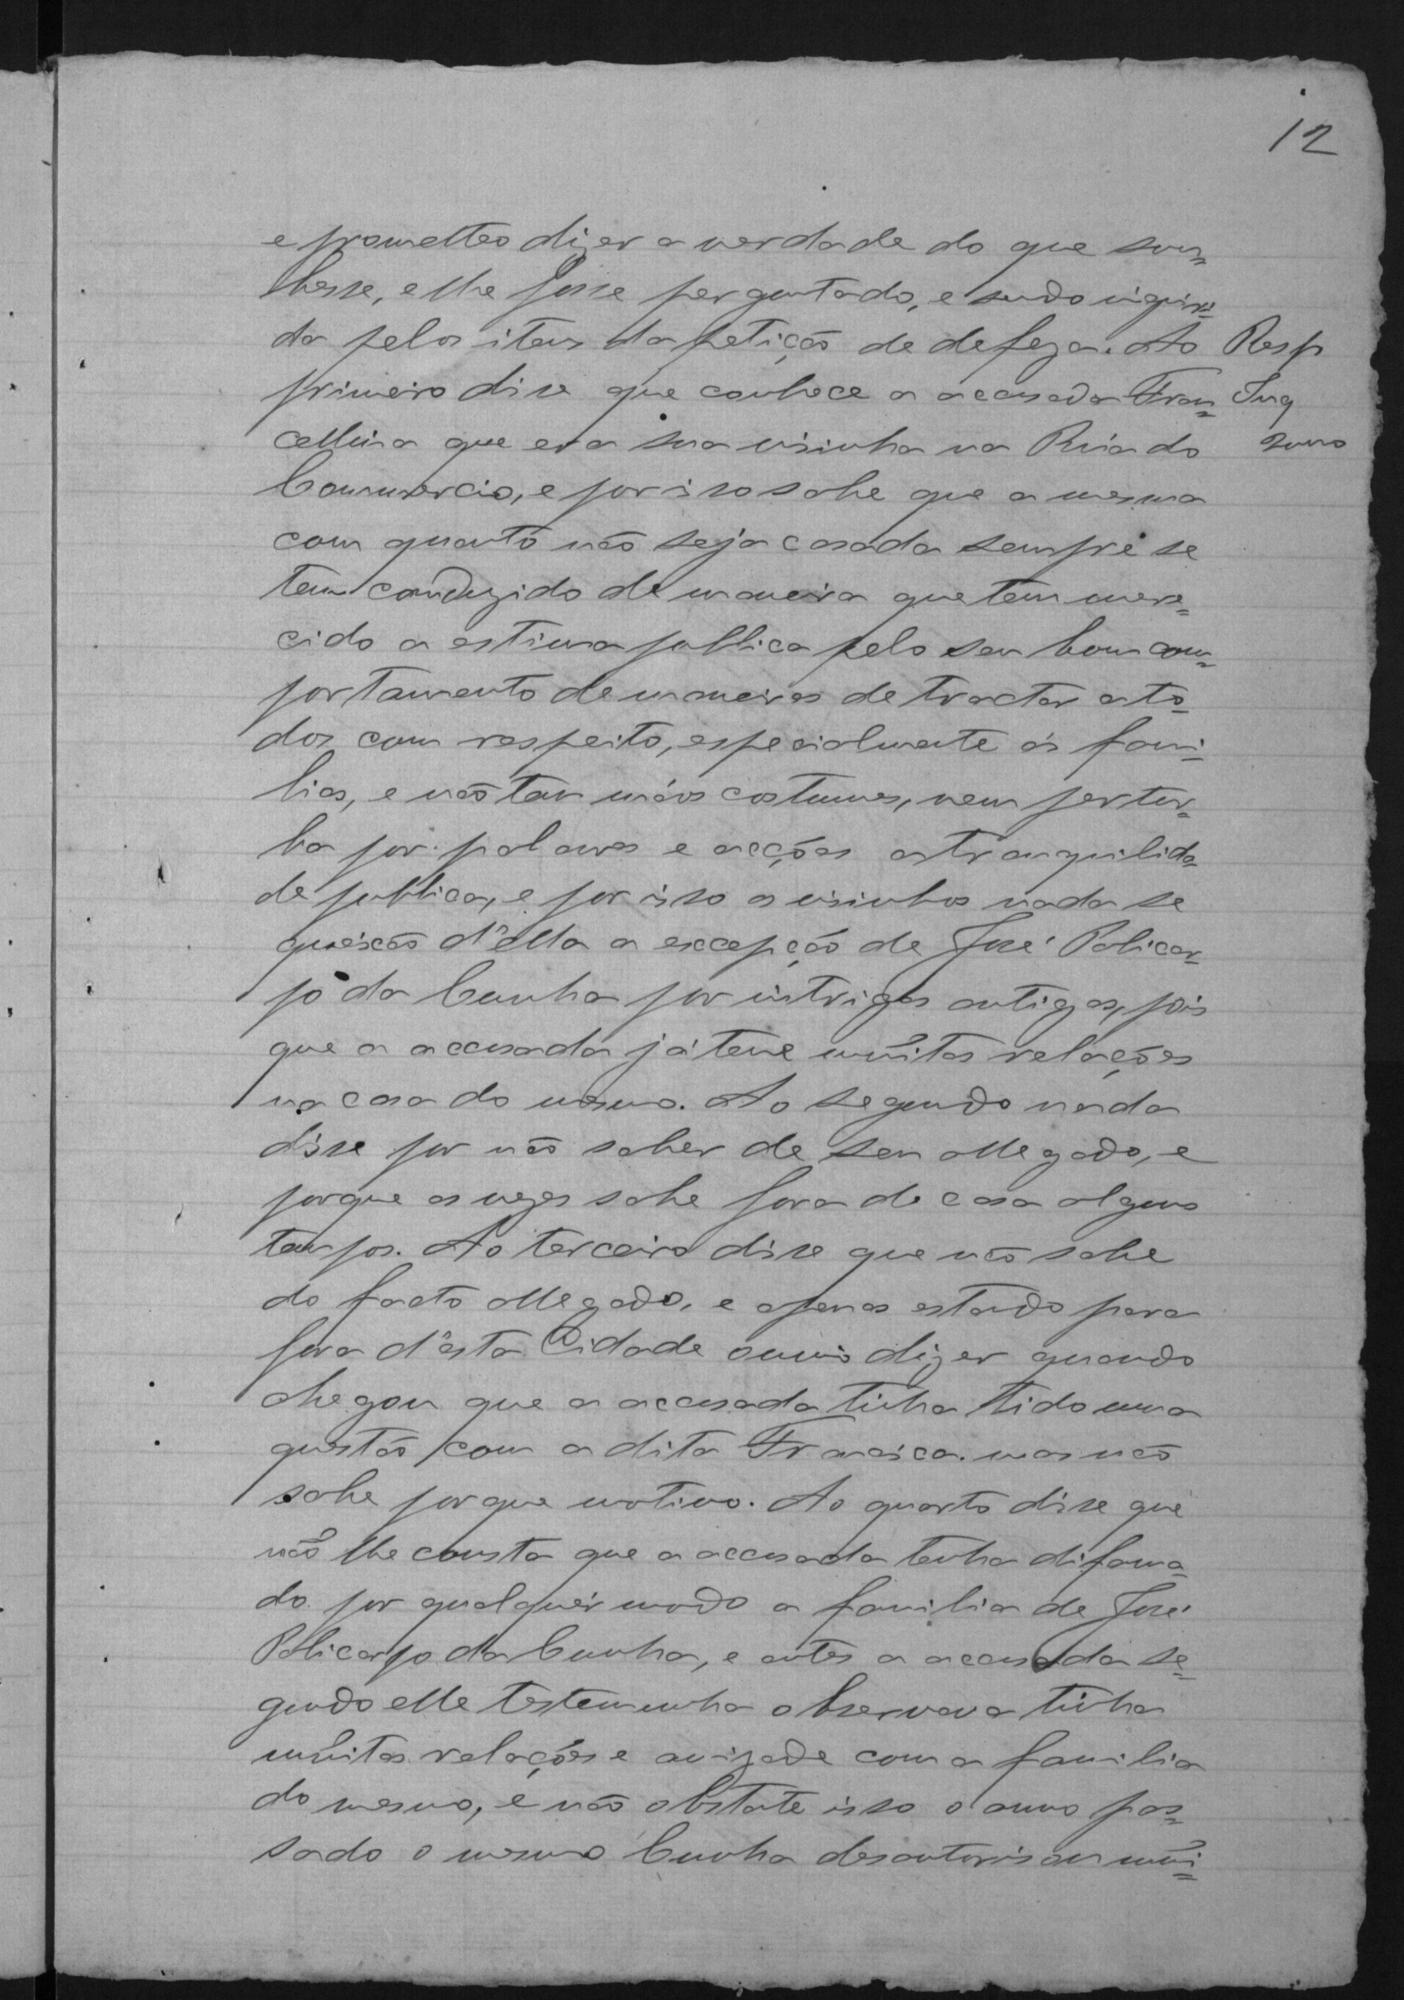 12
e prometteo dizer a verdade do que sou=
besse, e lhe fosse perguntado, e sendo inqueri=
da pelos itens da petição de defeza. Ao
Resp
primeiro disse que conhece a accusada Fran=
Inq
cellina que era sua visinha na Rua do
Commercio, e por isso sabe que a mesma
com quanto não seja casada sempre se
tem conduzido de maneira que tem mere=
cido a estima publica pelo seu bom com=
portamento de maneiras de tractar a to=
dos com respeito, especialmente ás fami=
lias, e não tem máos costumes, nem pertur=
ba por palavras e acções a tranquilida
de publica, e por isso os visinhos nada se
queixão d'ella a excepção de José Policar=
po da Cunha por intrigas antigas, pois
que a accusada já teve muitas relações
na casa do mesmo. Ao segundo nada
disse por não saber de seu allegado, e
porque as vezes sahe fora de casa alguns
tempos. Ao terceiro disse que não sabe
do facto allegado, e apenas estando para
fora d'esta Cidade ouvio dizer quando
chegou que a accusada tinha tido uma
questão com a dita Francisca. mas não
sabe porque motivo. Ao quarto disse que
não lhe consta que a accusada tenha difama=
do por qualquer modo a familia de José
Policarpo da Cunha, e antes a accusada se=
gundo elle testemunha observava tinha
muitas relações e amizade com a familia
do mesmo, e não obstante isso o anno pas=
sado o mesmo Cunha desautorisou mui=